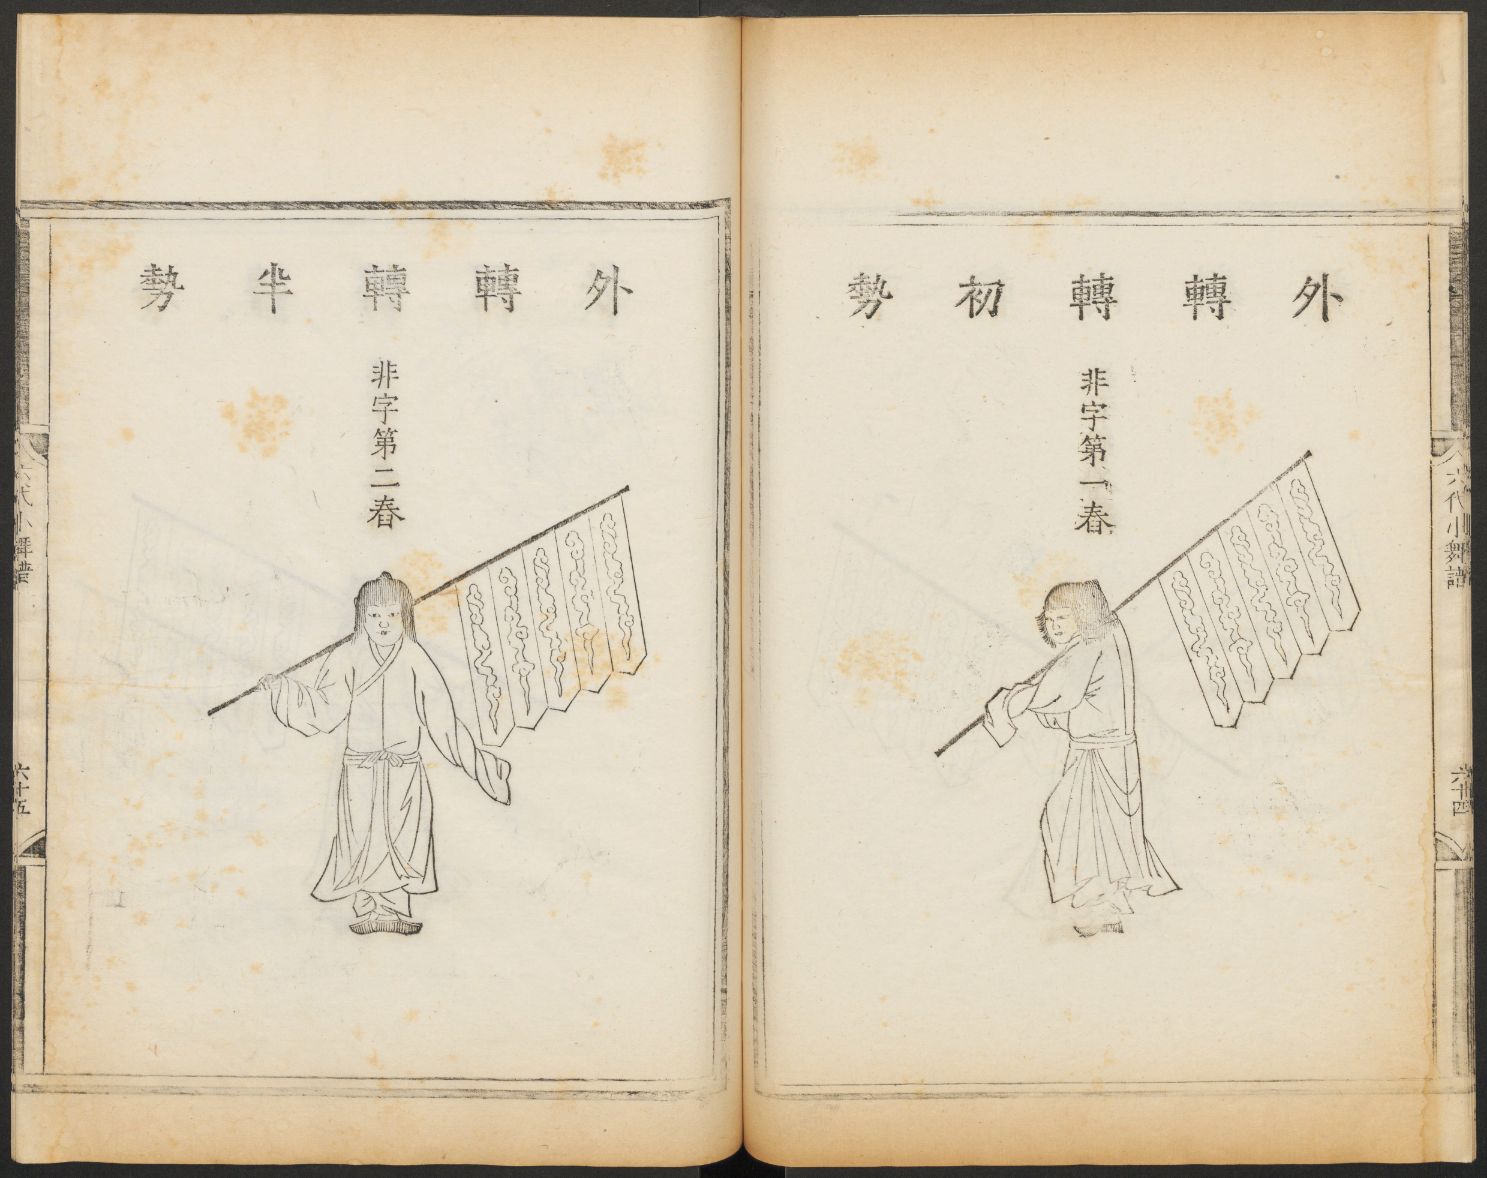 外轉轉初勢
非字第一舂
六代小舞譜
六十四
外轉轉半勢
非字第二舂
六代小舞譜
六十五